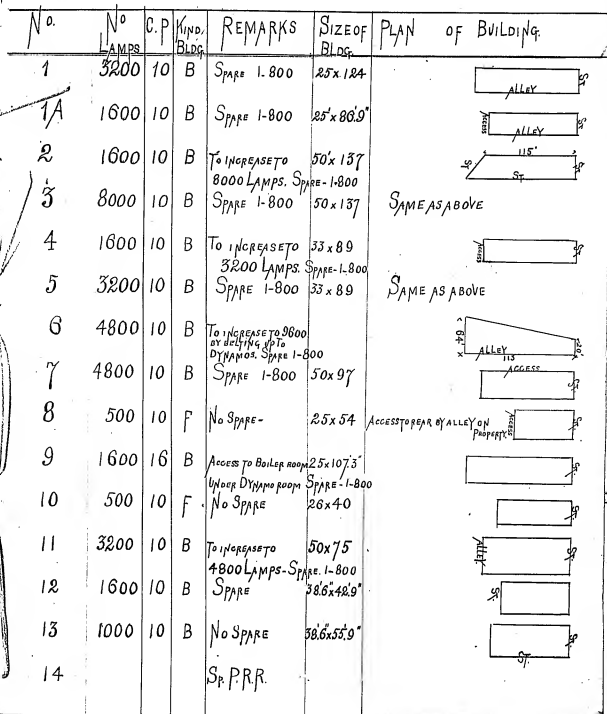 No. No LAMPS C.P KIND. BLDG. REMARKS SIZE OF BLDG. PLAN OF BUILDING.
1 3200 10 B SPARE 1-800 25 x 124 ALLEY ST
1A 1600 10 B SPARE 1-800 25' x 86.9" ACCESS ALLEY ST
2 1600 10 B TO INCREASE TO 50' x 137 115' ST ST
8000 LAMPS. SPARE-1-800
3 8000 10 B SPARE 1-800 50 x 137 SAME AS ABOVE
4 1600 10 B TO INCREASE TO 33 x 89 ACCESS ST
3200 LAMPS. SPARE-1-800
5 3200 10 B SPARE 1-800 33 x 89 SAME AS ABOVE
6 4800 10 B TO INCREASE TO 9600 64' 20'
BY BELTING UP TO
DYNAMOS. SPARE 1-800 ALLEY 113
7 4800 10 B SPARE 1-800 50 x 97 ACCESS ST
8 500 10 F NO SPARE- 25 x 54 ACCESS TO REAR BY ALLEY ON
PROPERTY ACCESS ST
9 1600 16 B ACCESS TO BOILER ROOM 25 x 107.3" ST.
UNDER DYNAMO ROOM SPARE-1-800
10 500 10 F NO SPARE 26 x 40 ST.
11 3200 10 B TO INCREASE TO 50 x 75 ALLEY ST.
4800 LAMPS-SPARE. 1-800
12 1600 10 B SPARE 38'.6" x 42'.9" ST.
13 1000 10 B NO SPARE 38'.6" x 55'.9" ST.
ST.
14 SP. P.R.R.